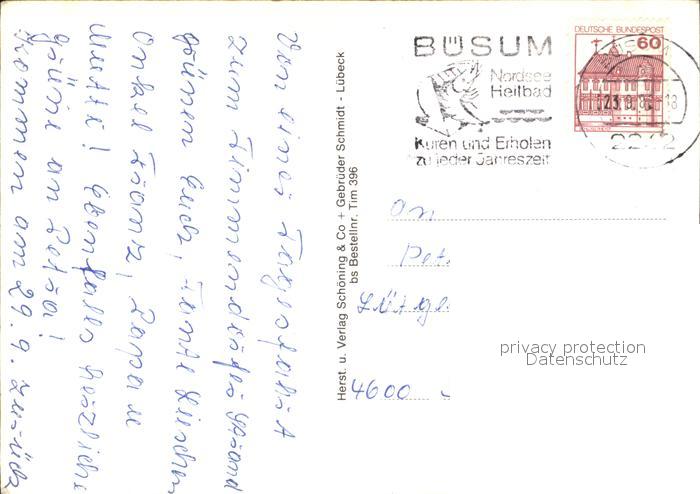 Von einer Tagesfahrt
zum Timmendorfer Strand
grüssen Euch, Tante Lieschen
Onkel Franz, Papa u
Mutti! Ebenfalls herzliche
Grüße an Petra!
Kommen am 29.9. zurück
Herst. u. Verlag Schöning & Co + Gebrüder Schmidt - Lübeck
bs Bestellnr. Tim 396
BÜSUM
Nordsee
Heilbad
Kuren und Erholen
zu jeder Jahreszeit
DEUTSCHE BUNDESPOST
60
2242
An
Pet
4600
privacy protection
Datenschutz